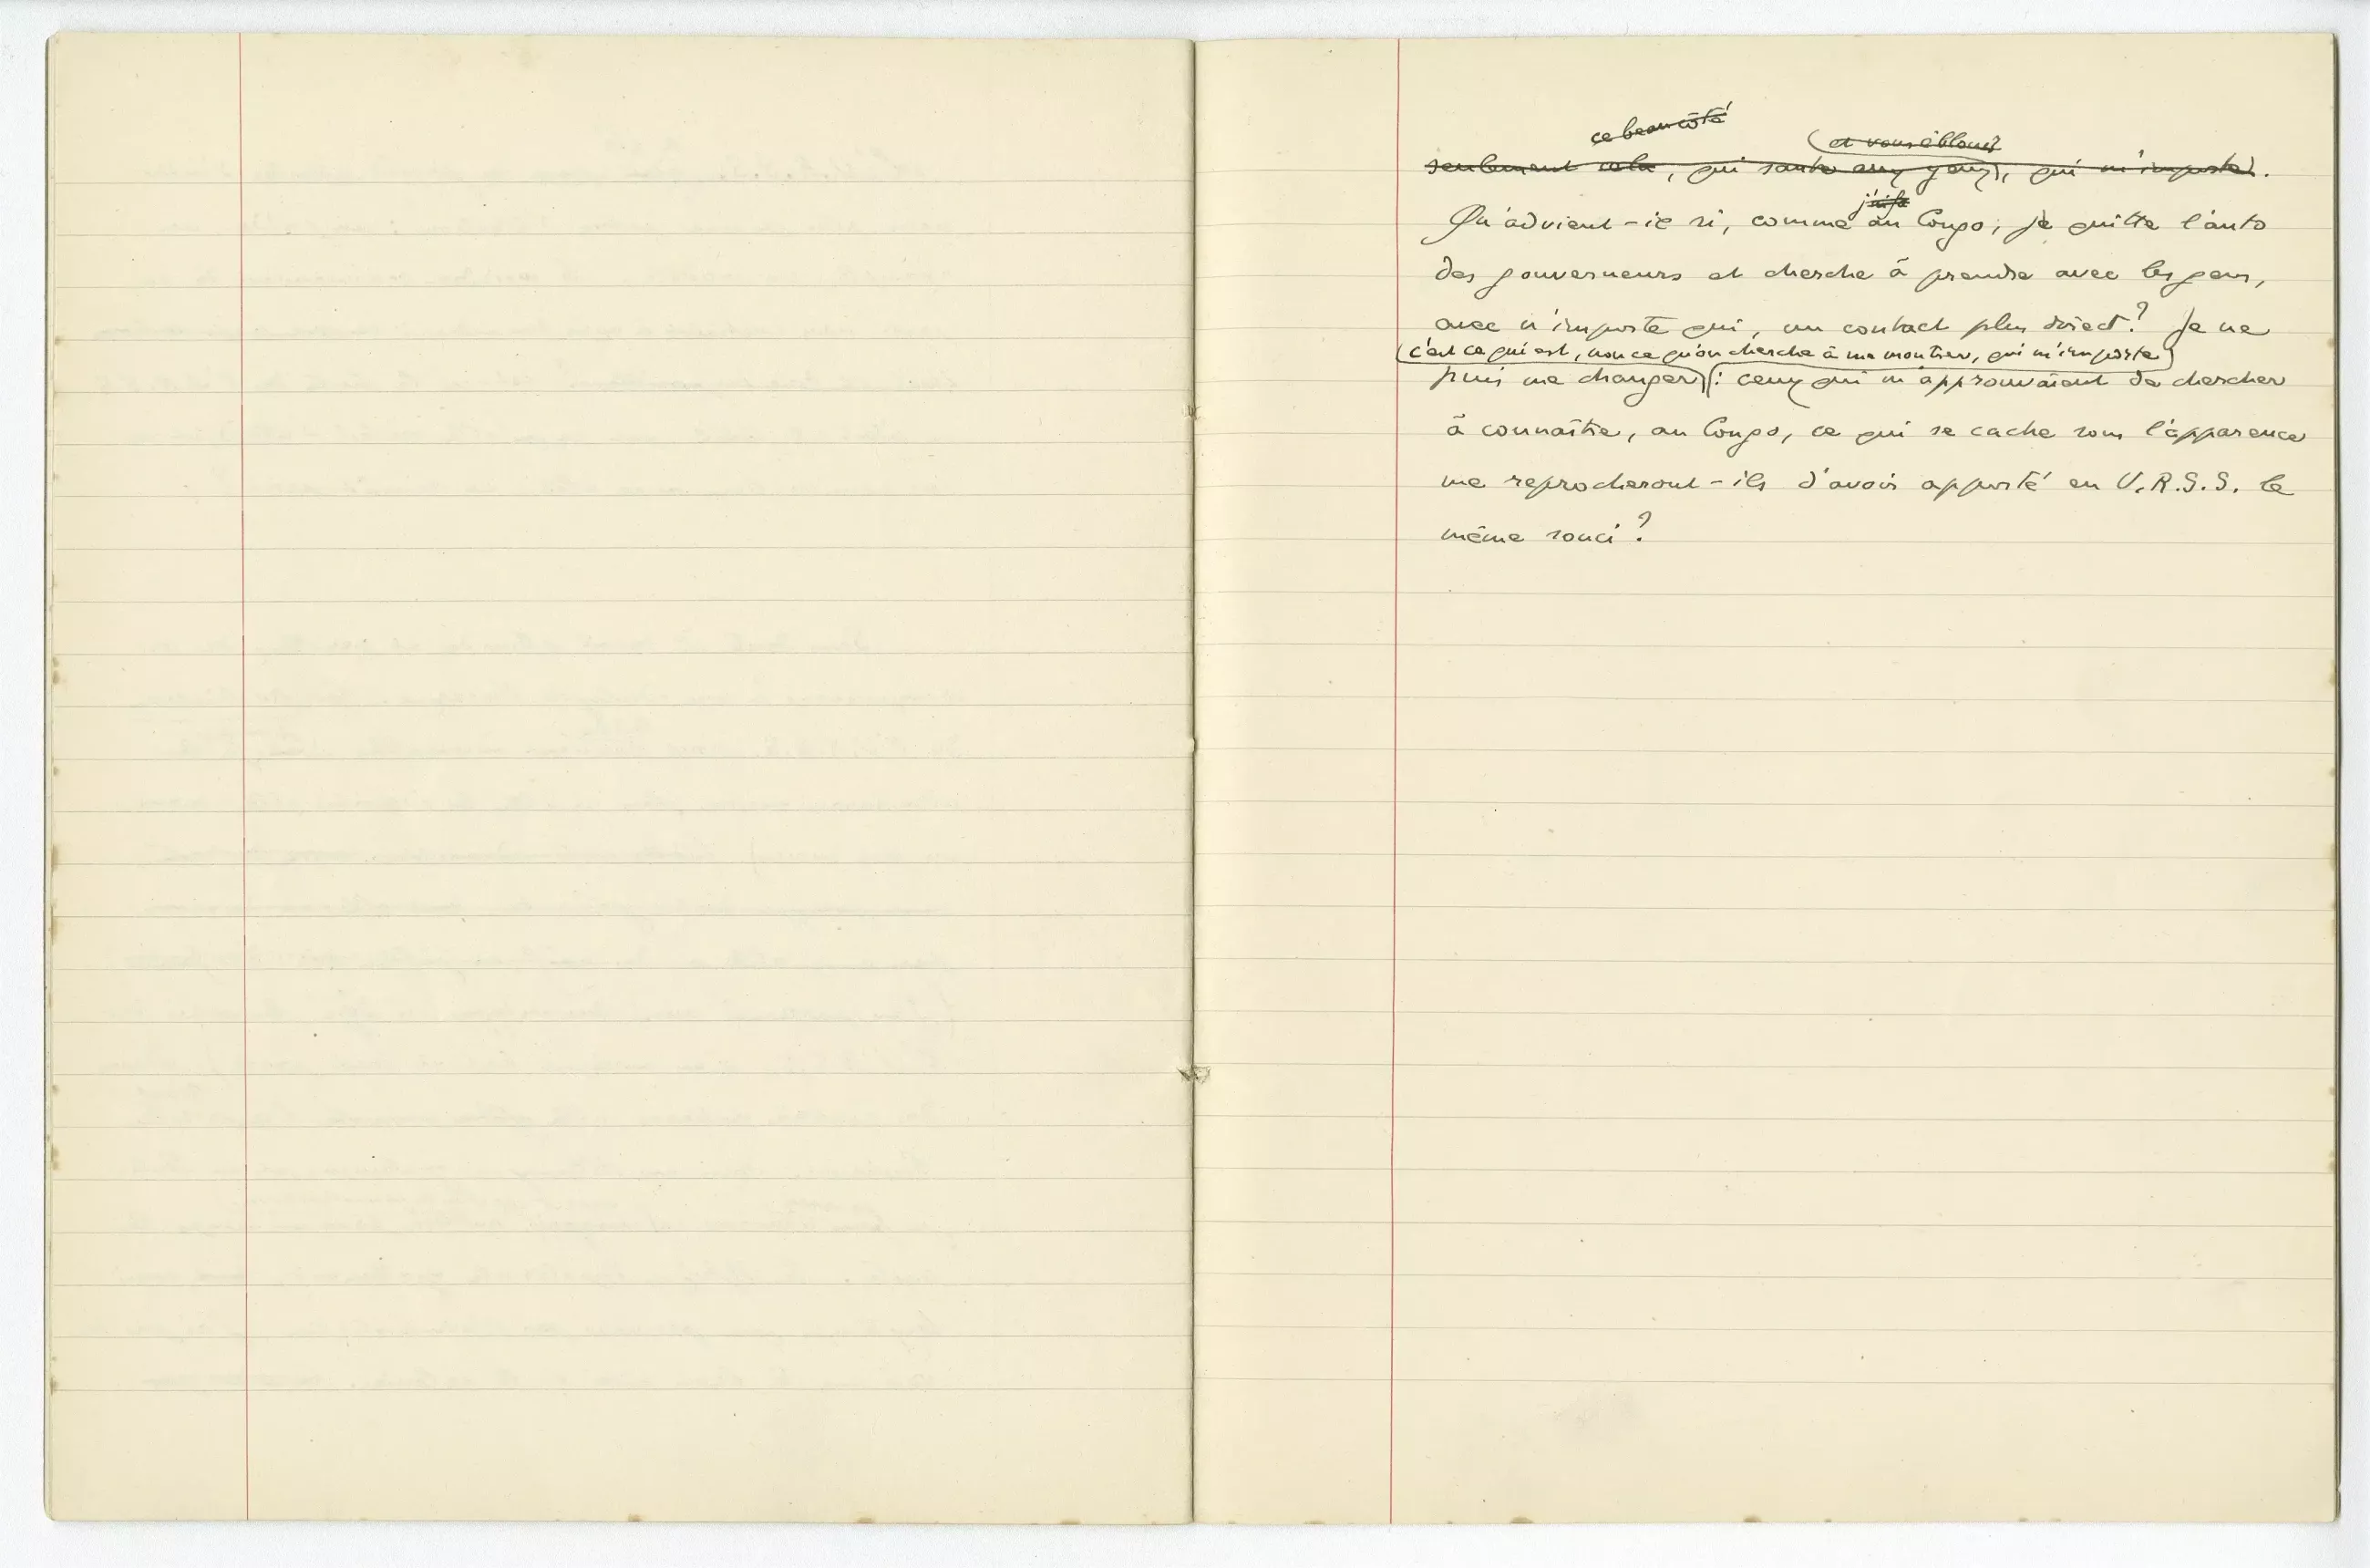 ce beau côté
et vous éblouit
seulement cela, qui saute aux yeux, qui m'importe.
Qu'advient-il si, comme au Congo, je quitte l'auto
des gouverneurs et cherche à prendre avec les gens,
avec n'importe qui, un contact plus direct? Je ne
c'est ce qui est, non ce qu'on cherche à me montrer, qui m'importe
puis me changer : ceux qui m'approuvaient de chercher
à connaître, au Congo, ce qui se cache sous l'apparence
me reprocheront-ils d'avoir apporté en U.R.S.S. le
même souci?